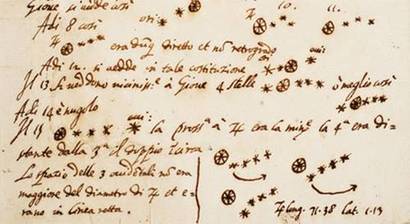 Giove si vedde così
Adi 8 così ori:
era dunq diretto et no retrogrado
10. 11.
Adi 12. si vedde in tale costituzione
Il 13 si veddono vicinissᵉ à Giove 4 stelle ò meglio così
Adi 14 è nugolo
Il 15 occ: la prossᵃ à ♃ era la minᵉ la 4ᵃ era di-
stante dalla 3ᵃ il doppio circa
Lo spazio delle 3 occidentali no era
maggiore del diametro di ♃ et e-
rano in linea retta.
♃ long. 71.38 Lat. 1.13